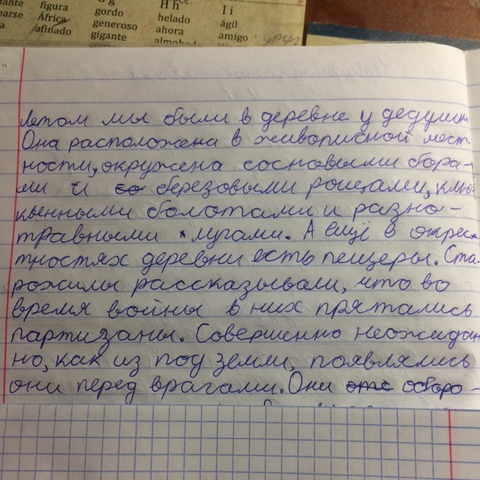 figura
gordo
H h
I i
earse
África
generoso
helado
ágil
afinado
gigante
ahora
amigo
Летом мы были в деревне у дедушки
Она расположена в живописной мест
ности, окружена сосновыми бора-
ми и берёзовыми рощами, клю
квенными болотами и разно-
травными лугами. А ещё в окрес
тностях деревни есть пещеры. Ста
рожилы рассказывали, что во
время войны в них прятались
партизаны. Совершенно неожидан
но, как из под земли, появлялись
они перед врагами. Они оборо-